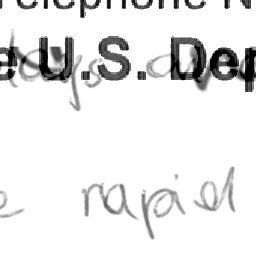 Telephone N
e U.S. Dep
days are
e rapid